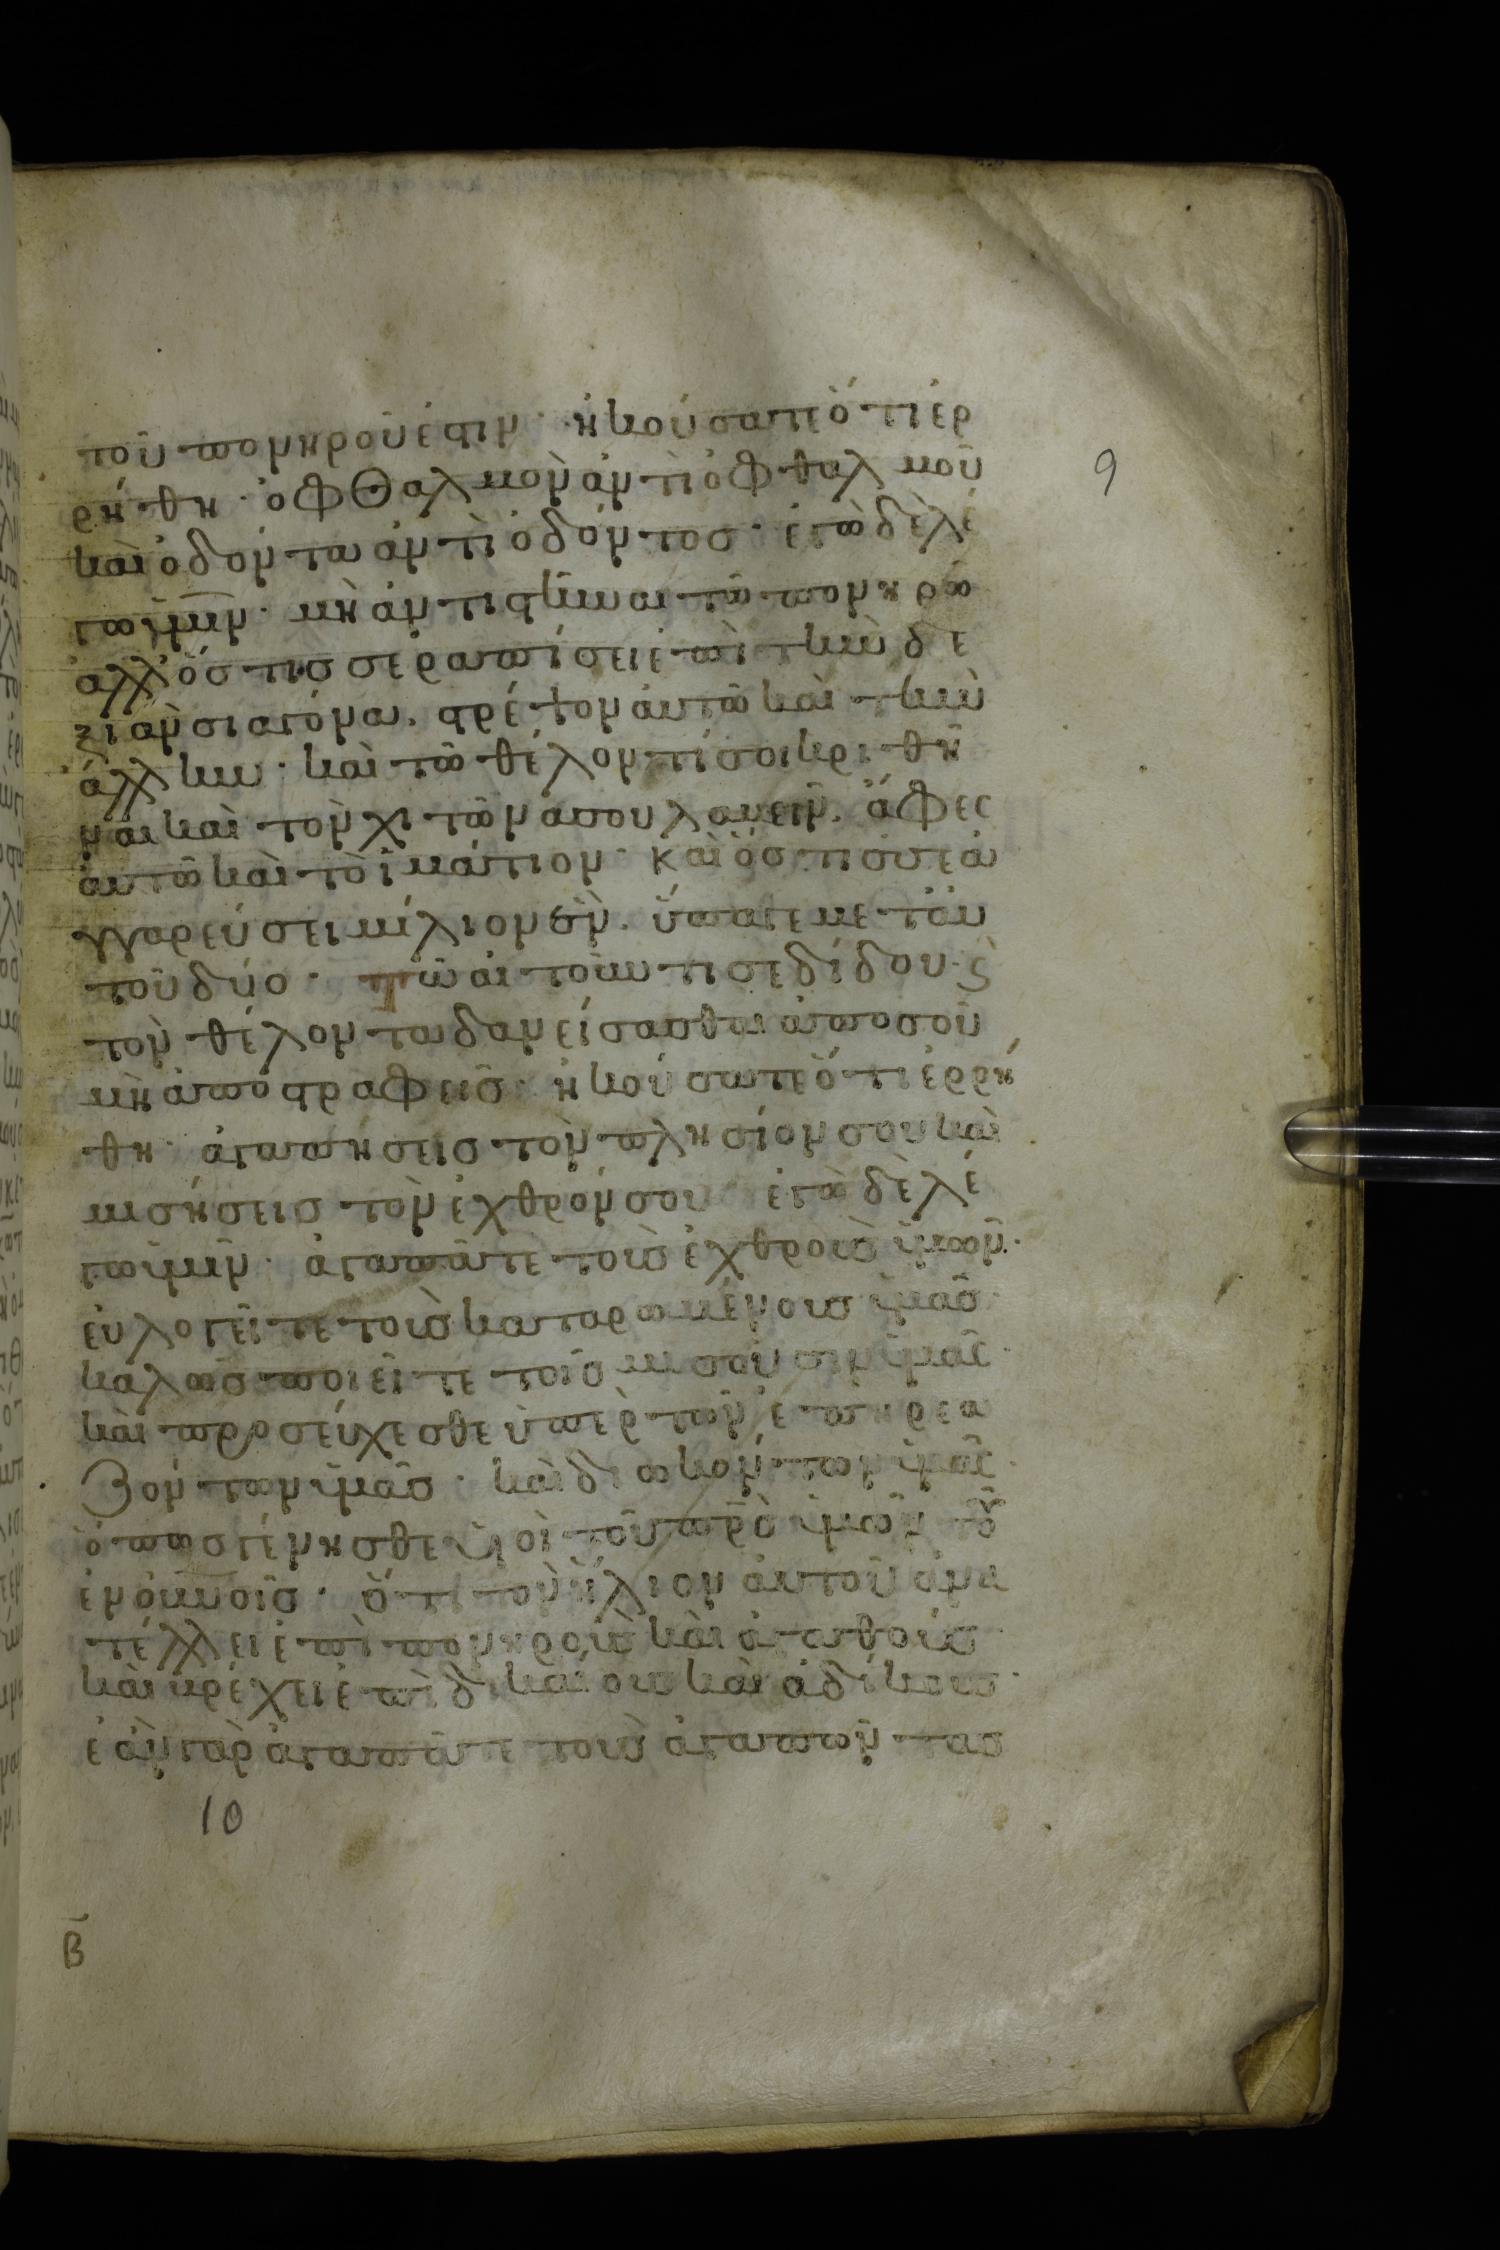 τοῦ πονηροῦ ἐστιν · ἠκούσατε ὅτι ἐρ
9
ρήθη · ὀφθαλμὸν ἀντὶ ὀφθαλμοῦ
καὶ ὀδόντα ἀντὶ ὀδόντος · ἐγὼ δὲ λέ
γω ὑμῖν · μὴ ἀντιστῆναι τῶ πονηρῶ
ἀλλ' ὅστις σε ραπίσει ἐπὶ τὴν δε
ξιὰν σιαγόνα · στρέψον αὐτῶ καὶ τὴν
ἄλλην · καὶ τῶ θέλοντί σοι κριθῆ
ναι καὶ τὸν χιτῶνά σου λαβεῖν · ἄφες
αὐτῶ καὶ τὸ ἱμάτιον · καὶ ὅστις σε ἀγ
γαρεύσει μίλιον ἓν · ὕπαγε με τ' αὐ
τοῦ δύο · τῶ αἰτοῦντι σε δίδου · ϛ
τὸν θέλοντα δανείσασθαι ἀπὸ σοῦ
μὴ ἀποστραφεῖς · ἠκούσατε ὅτι ἐρρή
θη · ἀγαπήσεις τὸν πλησίον σου καὶ
μισήσεις τὸν ἐχθρόν σου ἐγὼ δὲ λέ
γω ὑμῖν · ἀγαπᾶτε τοὺς ἐχθροὺς ὑμῶν ·
εὐλογεῖτε τοὺς καταρωμένους ὑμᾶς ·
καλῶς ποιεῖτε τοῖς μισοῦσιν ὑμᾶς ·
καὶ προσεύχεσθε ὑπὲρ τῶν ἐπηρεα
ζόντων ὑμᾶς · καὶ διωκόντων ὑμᾶς ·
ὅπως γένησθε υἱοὶ τοῦ πρς ὑμῶν τοῦ
ἐν οὐνοῖς · ὅτι τὸν ἥλιον αὐτοῦ ἀνα
τέλλει ἐπὶ πονηροὺς καὶ ἀγαθοὺς ·
καὶ βρέχει ἐπὶ δικαίους καὶ ἀδίκους ·
ἐὰν γὰρ ἀγαπᾶτε τοὺς ἀγαπῶντας
10
β